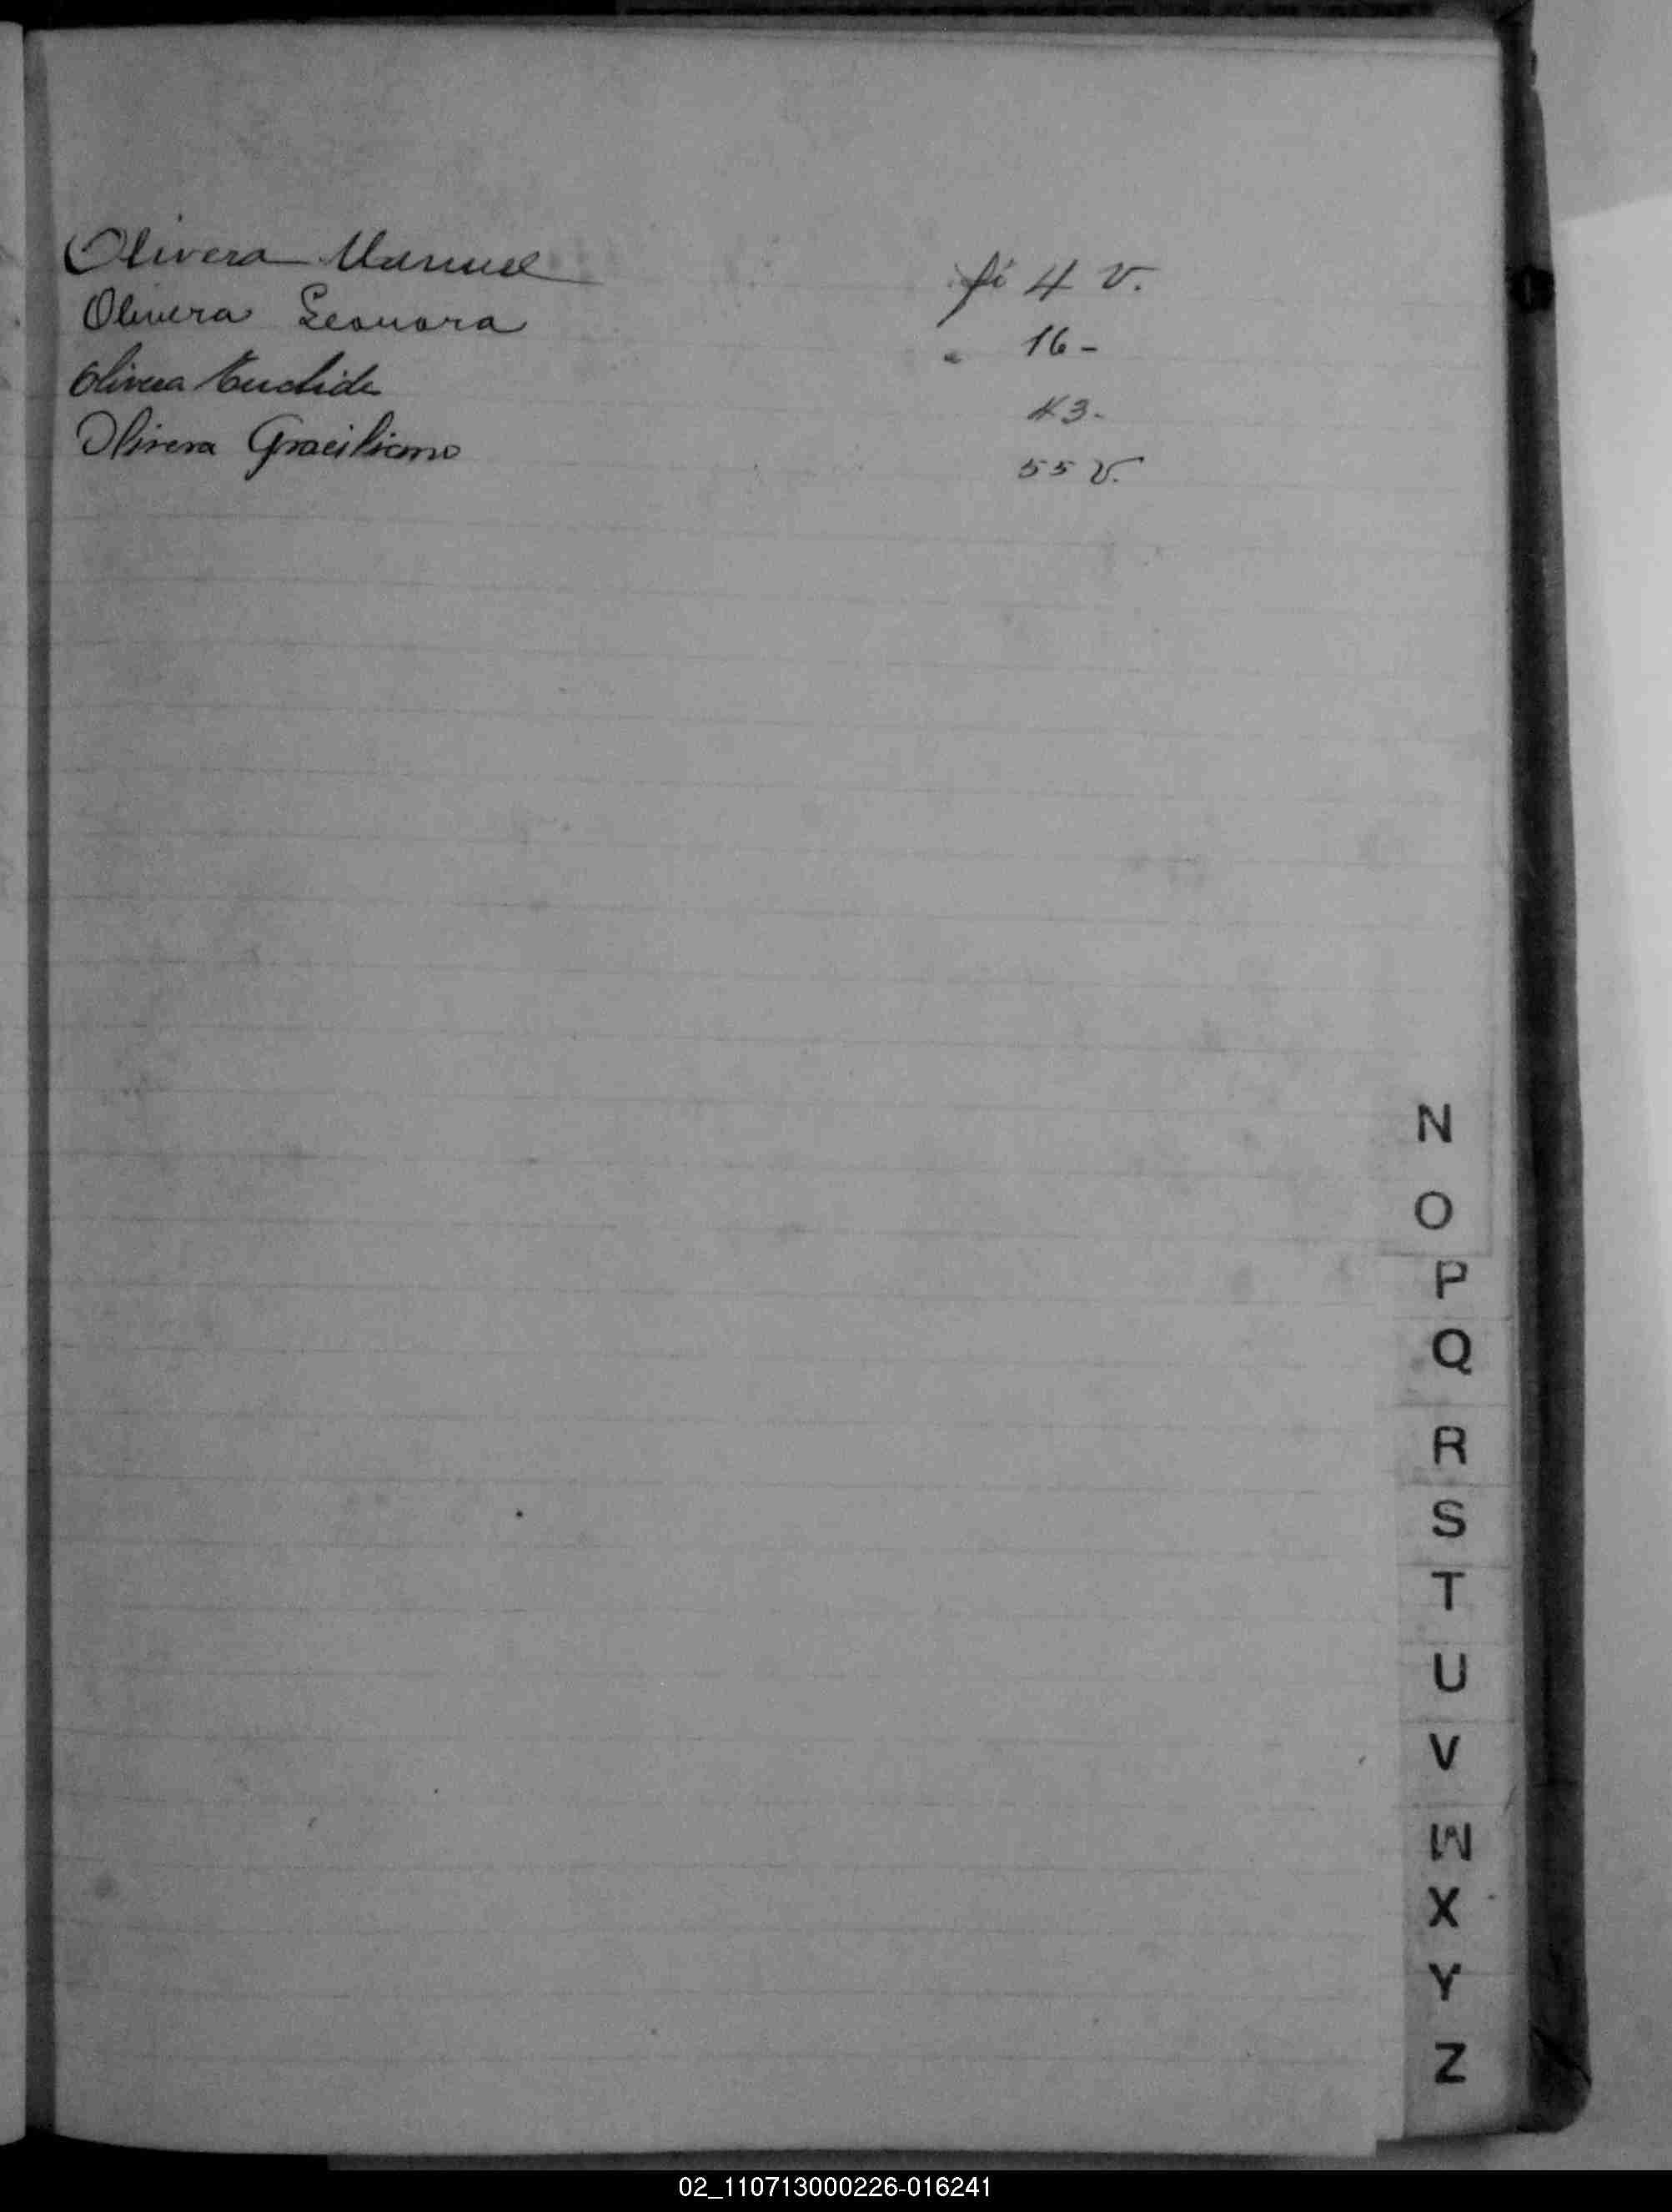 Olivera Manuel fi 4 v.
Olivera Leonora " 16 -
Olivera Euclide 43 -
Olivera Graciliano 55 v.
N
O
P
Q
R
S
T
U
V
W
X
Y
Z
02_110713000226-016241